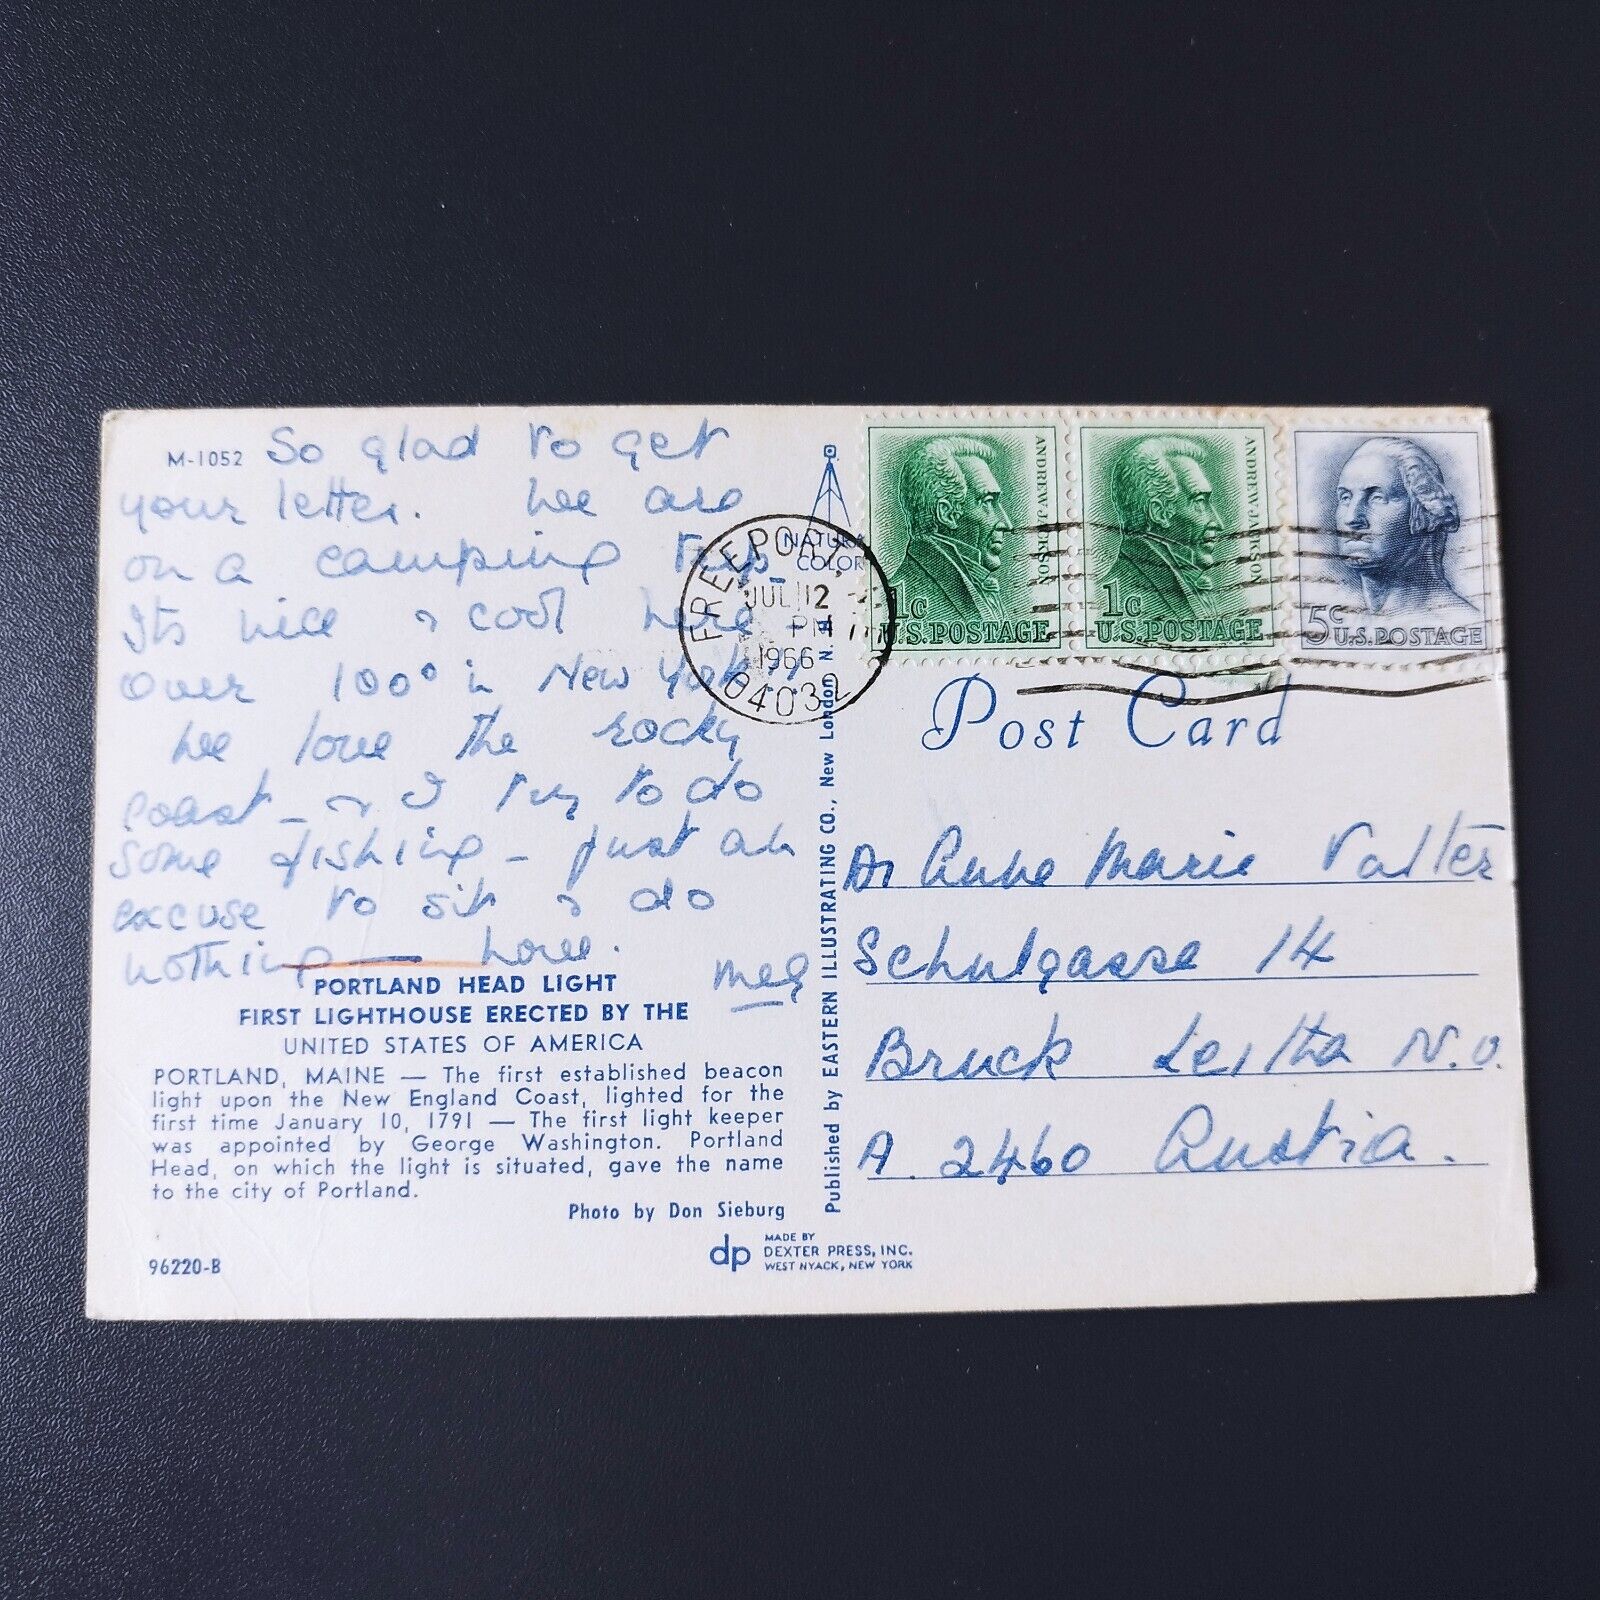 M-1052 So glad to get
your letter. We are
on a camping trip -
Its nice & cool here -
Over 100° in New York !!
We love the rocky
coast - & I try to do
some fishing - just an
excuse to sit & do
nothing — Love.
Meg
PORTLAND HEAD LIGHT
FIRST LIGHTHOUSE ERECTED BY THE
UNITED STATES OF AMERICA
PORTLAND, MAINE — The first established beacon
light upon the New England Coast, lighted for the
first time January 10, 1791 — The first light keeper
was appointed by George Washington. Portland
Head, on which the light is situated, gave the name
to the city of Portland.
Photo by Don Sieburg
96220-B
dp
MADE BY
DEXTER PRESS, INC.
WEST NYACK, NEW YORK
Published by EASTERN ILLUSTRATING CO., New London N. H.
NATURAL
COLOR
FREEPORT,
JUL 12
PM
1966
04032
ANDREW JACKSON
1c
U.S.POSTAGE
ANDREW JACKSON
1c
U.S.POSTAGE
5c
U.S.POSTAGE
Post Card
Dr Anne Marie
Schulgasse 14
Bruck Leitha N.O.
A. 2460 Austria.